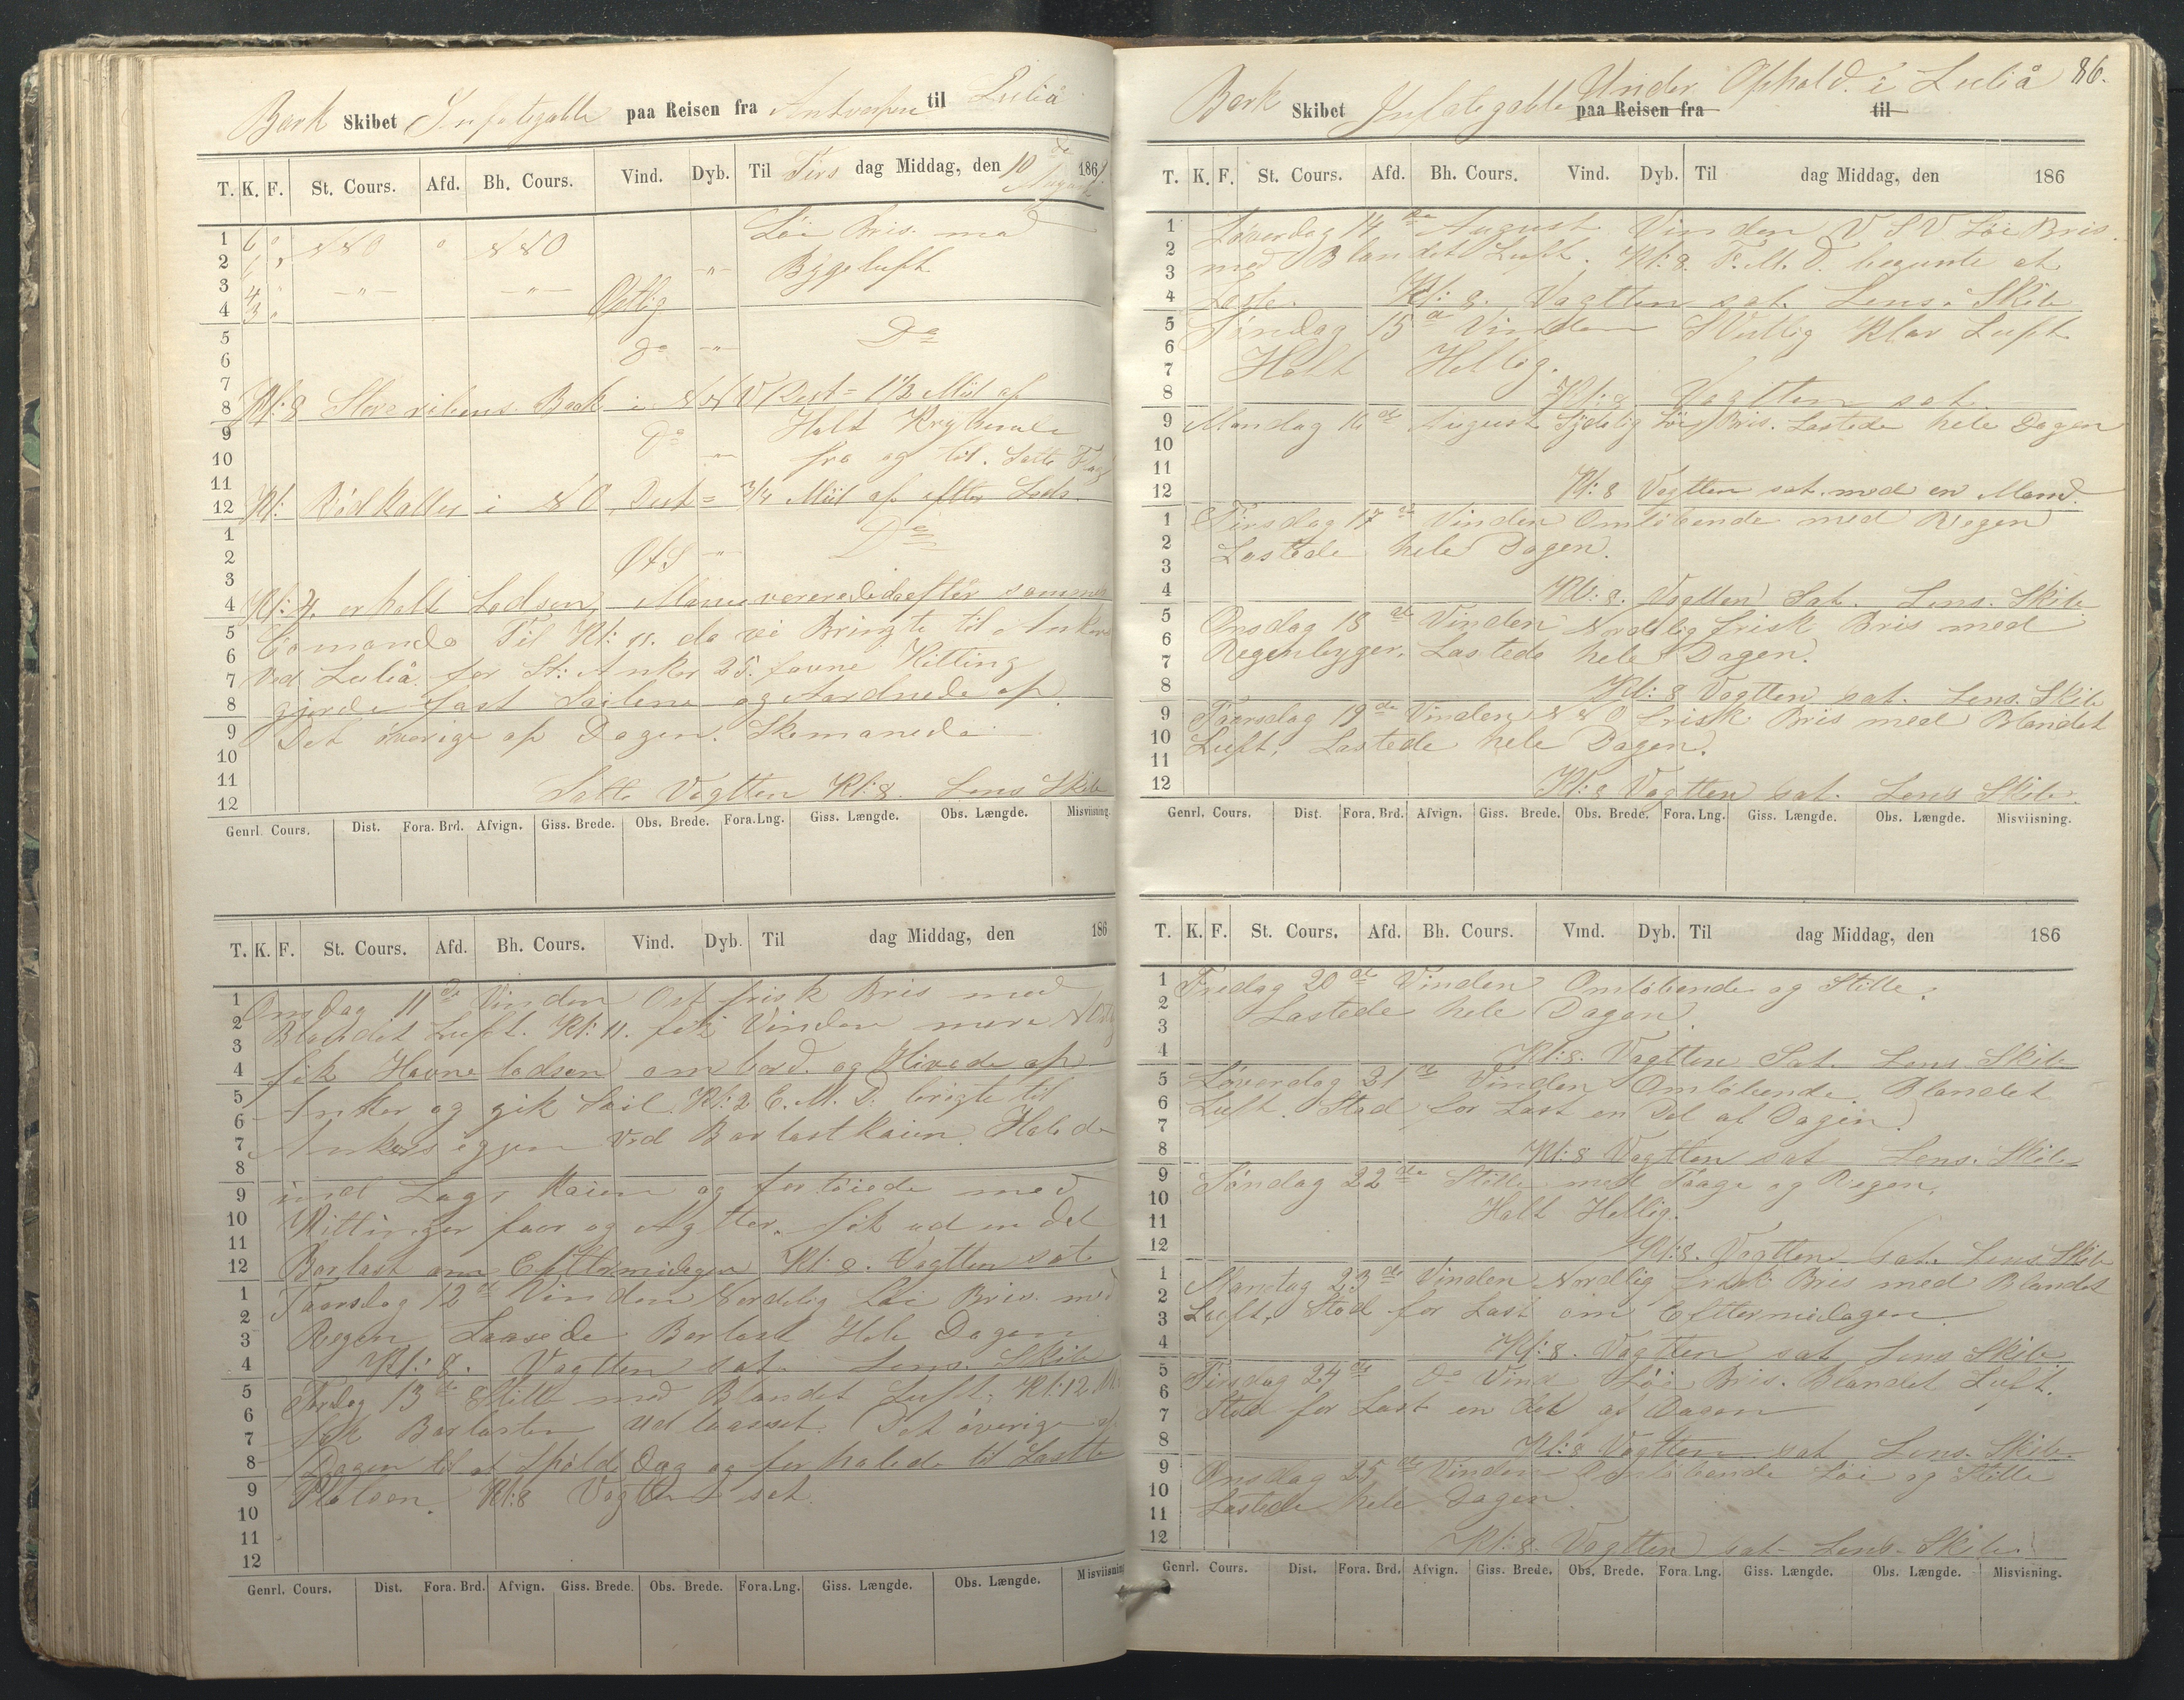 Bark Skibet Infatigable paa Reisen fra Antverpen til Luliå
T. K. F. St. Cours. Afd. Bh. Cours. Vind. Dyb. Til Tirs dag Middag, den 10de August 186
1 6 " NNO " NNO Löi Bris med
2 6 " Bygeluft
3 4 " —"— —"—
4 3 " Ostlig
5 Do —"— Do
6
7
8 Kl: 8 Stor Baak i NNV Dist= 1 1/2 Miil af
9 Do Holt Kryssende
10 fra og til. Satte Flag
11
12 Kl: Rödkallen i NO, Dist= 3/4 Miil af efter Lods.
1 Do
2 OtS —"—
3
4 Kl: 4 erholt Lodsen, Manuvererede da efter sammes
5 Comando Til Kl: 11. da vi Bringte til Ankers
6 Ved Luliå for St: Anker 25 favne Kitting
7 gjorde fast Seilene og Aardnede op
8
9 Det överige af Dagen. Skemanede
10
11 Satte Vagtten Kl: 8. Lens Skib
12
Genrl. Cours. Dist. Fora. Brd. Afvign. Giss. Brede. Obs. Brede. Fora.Lng. Giss. Længde. Obs. Længde. Misviisning.
T. K. F. St. Cours. Afd. Bh. Cours. Vind. Dyb. Til dag Middag, den 186
1 Onsdag 11de Vinden Ost frisk Bris med
2 Blandet Luft. Kl: 11. fik Vinden mere
3
4 fik Havnelodsen ombord. og Hivede op
5 Anker og gik Seil. Kl: 2 E. M. D. bragte til
6
7 Ankers igjen ved Barlastkaien. Halede
8
9 ind Langs Kaien og fortöiede med
10 Kittinger faar og Agtter. fik ud en Del
11
12 Barlast om Eftermidagen Kl: 8. Vagtten sat
1 Taarsdag 12de Vinden Nordelig Löi Bris med
2 Regen Laasede Barlast Hele Dagen
3
4 Kl: 8. Vagtten sat. Lens. Skib
5 Fredag 13de Stille med Blandet Luft. Kl: 12 M:
6
7 fik Barlasten udlaasset. Det överige af
8 Dagen til at og forhalede til Lastte
9 Pladsen. Kl: 8 Vagtten sat.
10
11
12
Genrl. Cours. Dist. Fora. Brd. Afvign. Giss. Brede. Obs. Brede. Fora.Lng. Giss. Længde. Obs. Længde. Misviisning
86.
Bark Skibet Infatigable paa Reisen fra Under Ophold. i Luliå til
T. K. F. St. Cours. Afd. Bh. Cours. Vind. Dyb. Til dag Middag, den 186
1 Löverdag 14de August Vinden VSV Löi Bris.
2 med Blandet Luft. Kl: 8. F. M. D. begynte at
3
4 Laste. Kl: 8. Vagtten sat. Lens. Skib
5 Söndag 15de Vinden Sydlig Klar Luft
6
7 Holt Hellig.
8 Kl: 8 Vagtten sat.
9 Mandag 16de August Sydelig Löi Bris. Lastede hele Dagen
10
11
12 Kl: 8 Vagtten sat. med en Mand.
1 Tirsdag 17de Vinden Omlöbende med Regen
2 Lastede hele Dagen.
3
4 Kl: 8. Vagtten Sat. Lens. Skib
5 Onsdag 18de Vinden Nordelig frisk Bris med
6 Regenbyger. Lastede hele Dagen.
7
8 Kl: 8 Vagtten sat. Lens. Skib
9 Taarsdag 19de Vinden NNO frisk Bris med Blandet
10 Luft. Lastede hele Dagen.
11
12 Kl: 8 Vagtten sat. Lens Skib.
Genrl. Cours. Dist. Fora. Brd. Afvign. Giss. Brede. Obs. Brede. Fora. Lng. Giss. Længde. Obs. Længde. Misviisning.
T. K. F. St. Cours. Afd. Bh. Cours. Vind. Dyb. Til dag Middag, den 186
1 Fredag 20de Vinden Omlöbende og Stille.
2 Lastede hele Dagen.
3
4 Kl: 8. Vagtten Sat. Lens Skib
5 Löverdag 21de Vinden Omlöbende. Blandet
6 Luft. Stod for Last en Del af Dagen.
7
8 Kl: 8 Vagtten sat Lens. Skib
9 Söndag 22de Stille med Taage og Regen.
10 Holt Hellig.
11
12 Kl: 8. Vagtten sat. Lens Skib
1 Mandag 23de Vinden Nordlig frisk Bris med Blandet
2
3 Luft. Stod for Last om Eftermidagen.
4 Kl: 8. Vagtten sat Lens Skib
5 Tirsdag 24de do Vind Löi Bris. Blandet Luft.
6 Stod for Last en Del af Dagen
7
8 Kl: 8 Vagtten sat Lens. Skib.
9 Onsdag 25de Vinden Omlöbende Löi og Stille
10
11 Lastede hele Dagen.
12 Kl: 8. Vagtten sat Lens. Skib.
Genrl. Cours. Dist. Fora. Brd. Afvign. Giss. Brede. Obs. Brede. Fora. Lng. Giss. Længde. Obs. Længde. Misvisning.